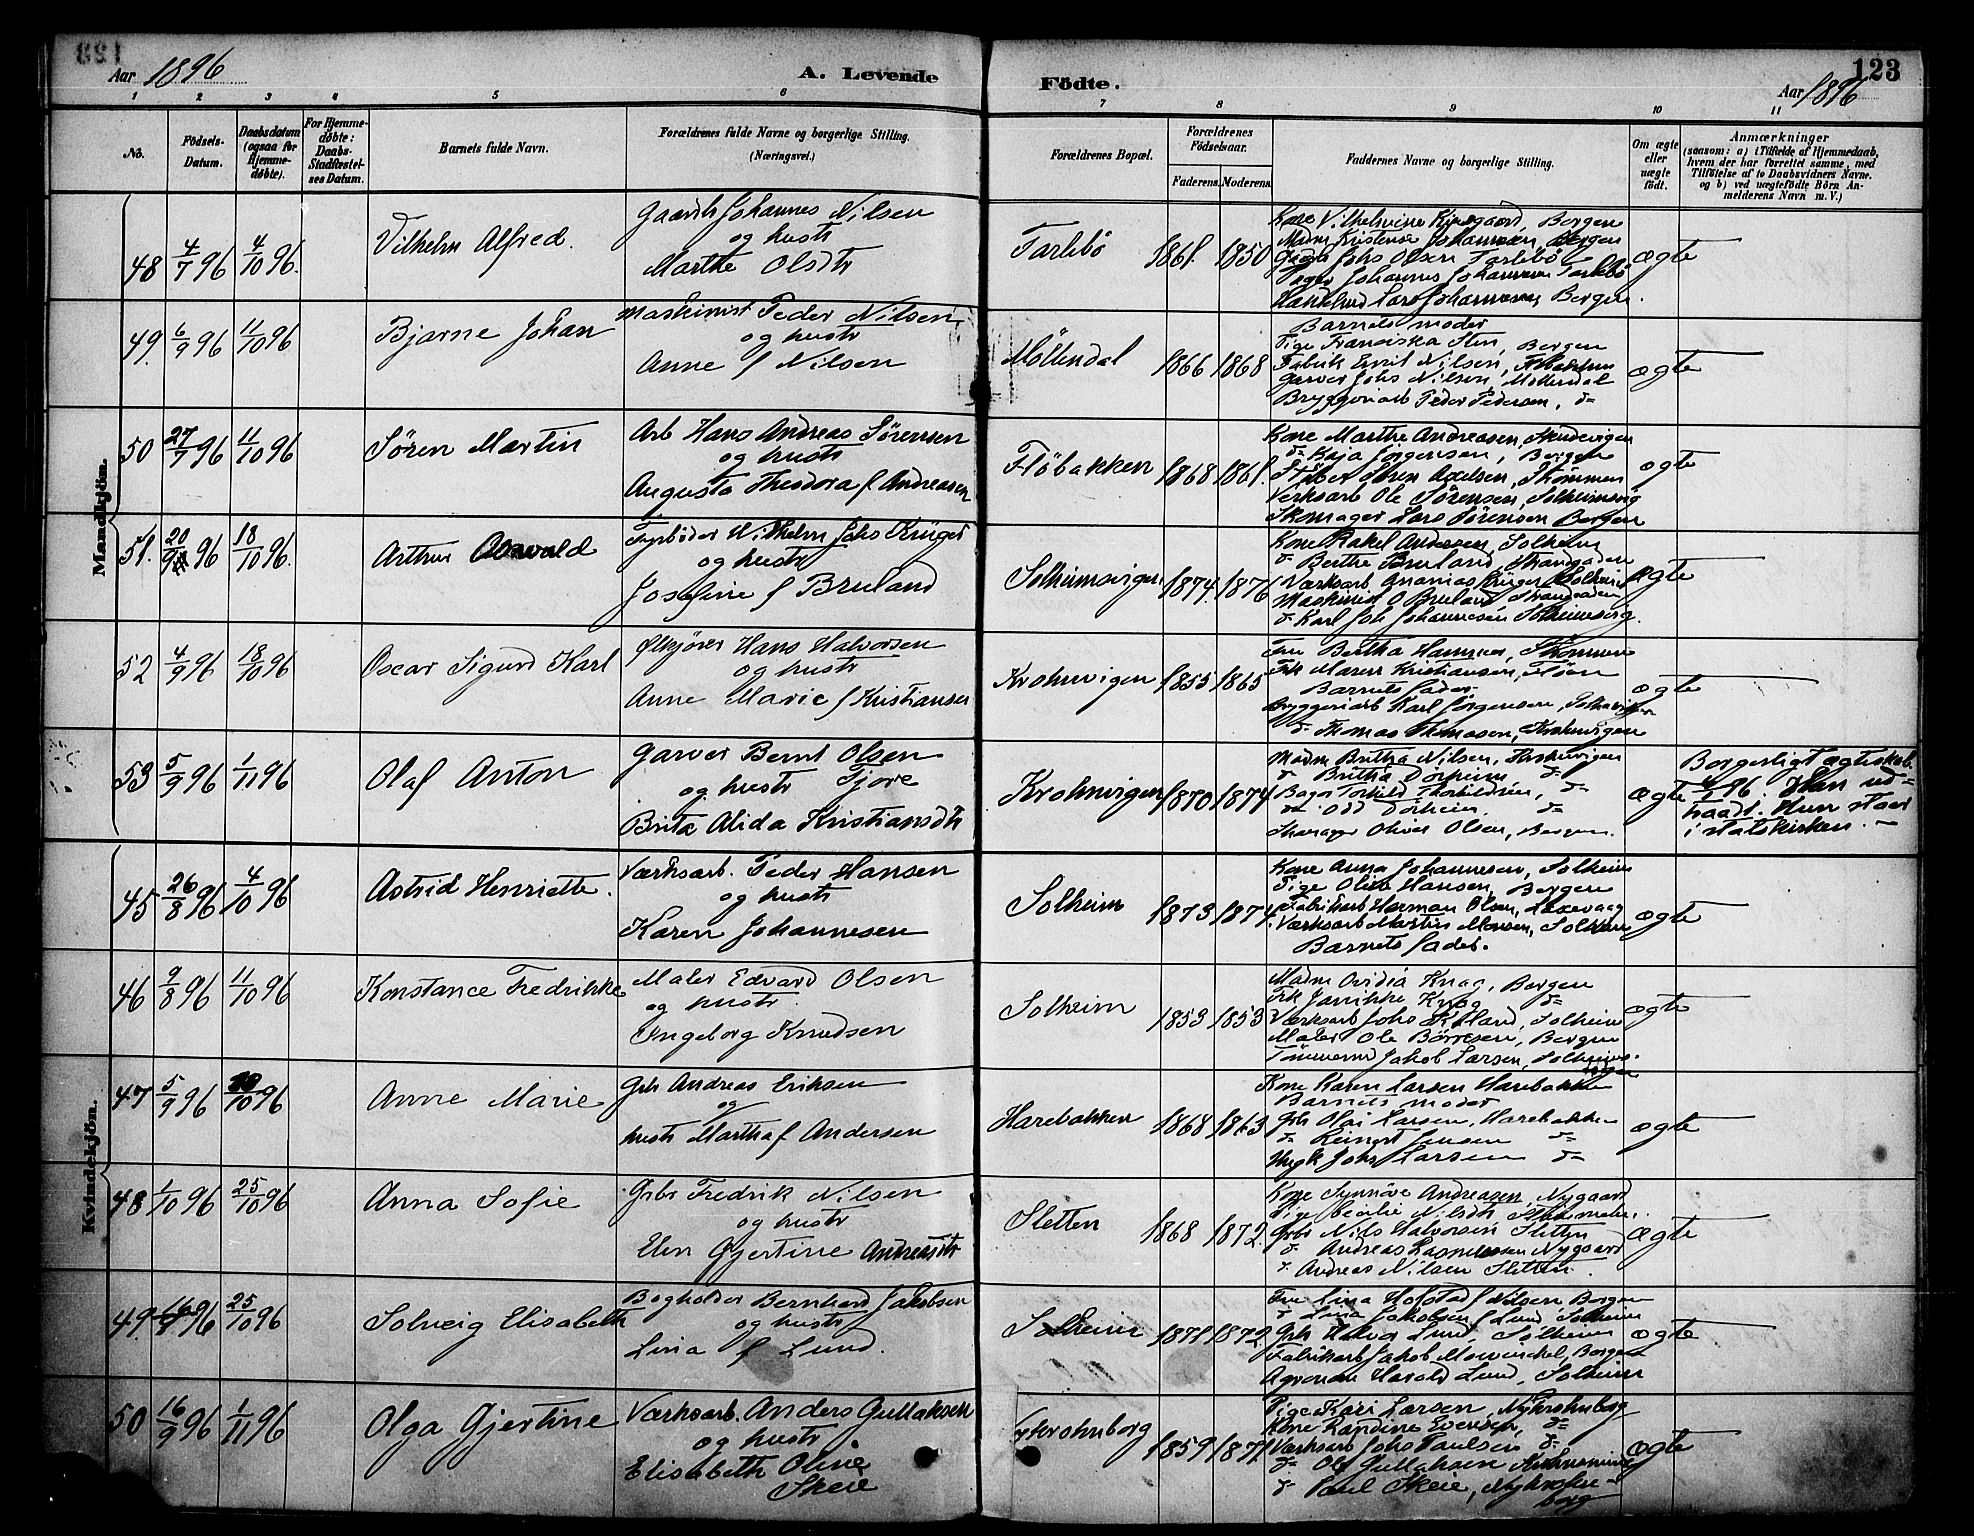 123
Aar 1896
A. Levende
Födte.
Aar 1896
1 2 3 4 5 6 7 8 9 10 11
No.
Födsels-Datum.
Daabsdatum (ogsaa for Hjemme-döbte).
For Hjemme-döbte: Daabs-Stadfæstel-ses Datum.
Barnets fulde Navn.
Forældrenes fulde Navne og borgerlige Stilling.
(Næringsvei.)
Forældrenes Bopæl.
Forældrenes Födselsaar.
Faderens. Moderens.
Faddernes Navne og borgerlige Stilling.
Om ægte eller uægte födt.
Anmærkninger
(saasom: a) i Tilfælde af Hjemmedaab, hvem der har forrettet samme, med Tilföielse af to Daabsvidners Navne. og b) ved uægtefödte Börn An-melderens Navn m. V.)
Mandkjön.
48 4/7 96 4/10 96. Vilhelm Alfred.
Gaardbr Johannes Nilsen
og hustr
Marthe Olsdtr
Tarlebö 1861. 1850
Kone Vilhelmine, Bergen
Madm Kristense Johannesen, Bergen
Gaardb Johs Olsen Tarlebö
Johannes Johannesen Tarlebö
Lars Johannesen Bergen.
ægte
49. 6/9 96 11/10 96 Bjarne Johan
Maskinist Peder Nilsen
og hustr
Anne f Nilsen
Möllendal 1866 1868
Barnets moder
Pige Franciska Sten, Bergen
Fabrik Emil Nilsen,
Garver Johs Nilsen, Möllendal
Bryggeriarb Peder Pedersen, d=
ægte
50 27/7 96 11/10 96 Sören Martin
Arb Hans Andreas Sörensen
og hustr
Augusta Theodora f Andreasen
Flöbakken 1868 1861.
Kone Marthe Andreasen, Skudevigen
d= Kaja Jörgensen, Bergen
Axelsen, Strömmen
Verksarb Ole Sörensen, Solheimsvig
Skomager Lars Sörensen Bergen
ægte
51. 20/9 96 18/10 96. Arthur Osvald
Fyrböder Vilhelm Johs Krüger
og hustr
Josefine f Bruland
Solheimsvigen 1874. 1876
Kone Rakel Andersen, Solheim
d= Berthe Bruland, Strandgaden
Værksarb Ananias Krüger Solheim
Maskinist O Bruland Strandgaden
d= Karl Joh Johannesen Solheimsvig.
ægte
52 4/9 96 18/10 96 Oscar Sigurd Karl
Ølkjörer Hans Halvorsen
og hustr
Anne Marie f Kristiansen
Krohnvigen 1855 1865
Fru Bertha Hammer, Strömmen
Frk Maren Kristiansen, Flöen
Barnets fader.
Bryggeriarb Karl Jörgensen,
d= Thomas Thomasen, Krohnvigen
ægte
53 5/9 96 1/11 96 Olaf Anton
Garver Bernt Olsen
og hustr Tjore
Brita Alida Kristiansdtr
Krohnvigen 1870 1874
Madm Britha Nilsen, Krohnvigen
d= Britha Dörheim, d=
Bager Torkild Thorkildsen, d=
d= Odd Dörheim d=
Oliver Olsen, Bergen.
ægte
Borgerligt ægteskab
96. Han ud-
traadt. Hun staar
i statskirken. —
Kvindekjön.
45 26/8 96 4/10 96 Astrid Henriette.
Værksarb. Peder Hansen
og hustr
Karen Johannesen
Solheim 1873 1874.
Kone Anna Johannesen, Solheim
Pige Olive Hansen, Bergen
Fabrikarb Herman Olsen, Laxevaag
Værksarb Martin Monsen, Solheim
Barnets fader.
ægte
46 9/8 96 11/10 96 Konstance Fredrikke
Maler Edvard Olsen
og hustr.
Ingeborg Knudsen
Solheim 1853 1853
Madm Ovidia Knag, Bergen
Frk Jannikke Knag d=
Værksarb Johs, Solheim
Maler Ole Börresen, Bergen
Tömmermd Jakob Larsen,
ægte
47 5/9 96 /10 96 Anne Marie
Grbr Andreas Eriksen
og
hustr Martha f Andersen
Harebakken 1868 1863
Kone Karen Larsen Harebakke
Barnets moder
Grb Olai Larsen, Harebakken
d= Reinert Jensen d=
Johs Larsen d=
ægte
48 1/10 96 25/10 96 Anna Sofie
Grbr Fredrik Nilsen
og hustr
Elen Gjertine Andreasdtr
Sletten 1868 1872.
Kone Synnöve Andreasen, Nygaard
Pige Cecilie Nilsdtr
Grbr Nils Halvorsen Sletten
d= Andreas Rasmussen Nygaard
d= Andreas Nilsen Sletten.
ægte
49. 96 25/10 96 Solveig Elisabeth
Bogholder Bernhard Jakobsen
og hustr
Lina f Lund.
Solheim 1871 1872.
Fru Lina Hofstad f Nilsen Bergen
d= Lina Jakobsen f Lund Solheim
Grb Halvor Lund, Solheim
Fabrikarb Jakob Mowinckel, Bergen
Agronom Harald Lund, Solheim
ægte
50 16/9 96 1/11 96 Olga Gjertine
Værksarb. Anders Gullaksen
og hustr
Elisabeth Oline
Skeie
1859 1871.
Pige Kari Larsen, Nykrohnborg
Kone Randine Evensen, d=
Værksarb Johs Paulsen d=
d= Ole Gullaksen
d= Paul Skeie, Nykrohn-
borg
ægte